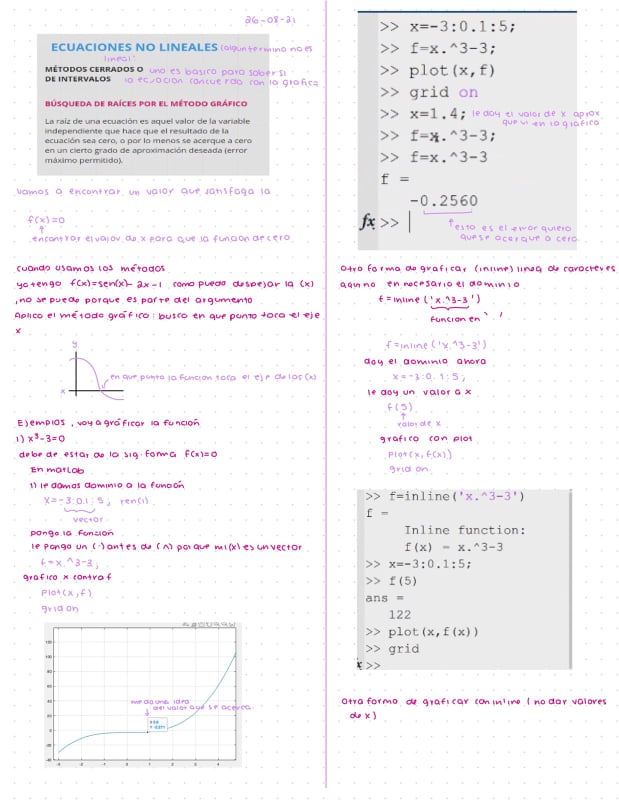 26-08-21
ECUACIONES NO LINEALES (algún termino no es
lineal)
MÉTODOS CERRADOS O uno es basico para saber si
DE INTERVALOS la ecuación concuerda con la grafica
BÚSQUEDA DE RAÍCES POR EL MÉTODO GRÁFICO
La raíz de una ecuación es aquel valor de la variable
independiente que hace que el resultado de la
ecuación sea cero, o por lo menos se acerque a cero
en un cierto grado de aproximación deseada (error
máximo permitido).
Vamos a encontrar un valor que satisfaga la
f(x)=0
encontrar el valor de x para que la función de cero
Cuando usamos los métodos
ya tengo f(x)=sen(x)- 2x-1 como puedo despejar la (x)
,no se puede porque es parte del argumento
Aplico el método gráfico: busco en que punto toca el eje
x
y
en que punto la función toca el eje de los (x)
x
Ejemplos , voy a gráficar la función
1) x³-3=0
debe de estar de la sig. forma f(x)=0
En matlab
1) le damos dominio a la función
x=-3:0.1:5; ren(1)
vector
pongo la función
le pongo un (.) antes de (^) porque mi(x) es un vector
f=x.^3-3;
grafico x contra f
Plot(x,f)
grid on
120
100
80
60
40
20
0
-20
-40
me da una idea
del valor que se acerca.
-3
-2
-1
0
1
2
3
4
>> x=-3:0.1:5;
>> f=x.^3-3;
>> plot(x,f)
>> grid on
>> x=1.4; le doy el valor de x aprox
que vi en la grafica
>> f=x.^3-3;
>> f=x.^3-3
f =
-0.2560
fx >>
esto es el error quiero
que se acerque a cero
Otra forma de graficar (inline) linea de caracteres
aquí no es necesario el dominio
f=inline ('x.^3-3')
función en ' '
f=inline('x.^3-3')
doy el dominio ahora
x=-3:0.1:5;
le doy un valor a x
f(5)
valor de x
grafico con plot
plot(x,f(x))
grid on
>> f=inline('x.^3-3')
f =
Inline function:
f(x) = x.^3-3
>> x=-3:0.1:5;
>> f(5)
ans =
122
>> plot(x,f(x))
>> grid
>>
Otra forma de graficar con inline (no dar valores
de x)